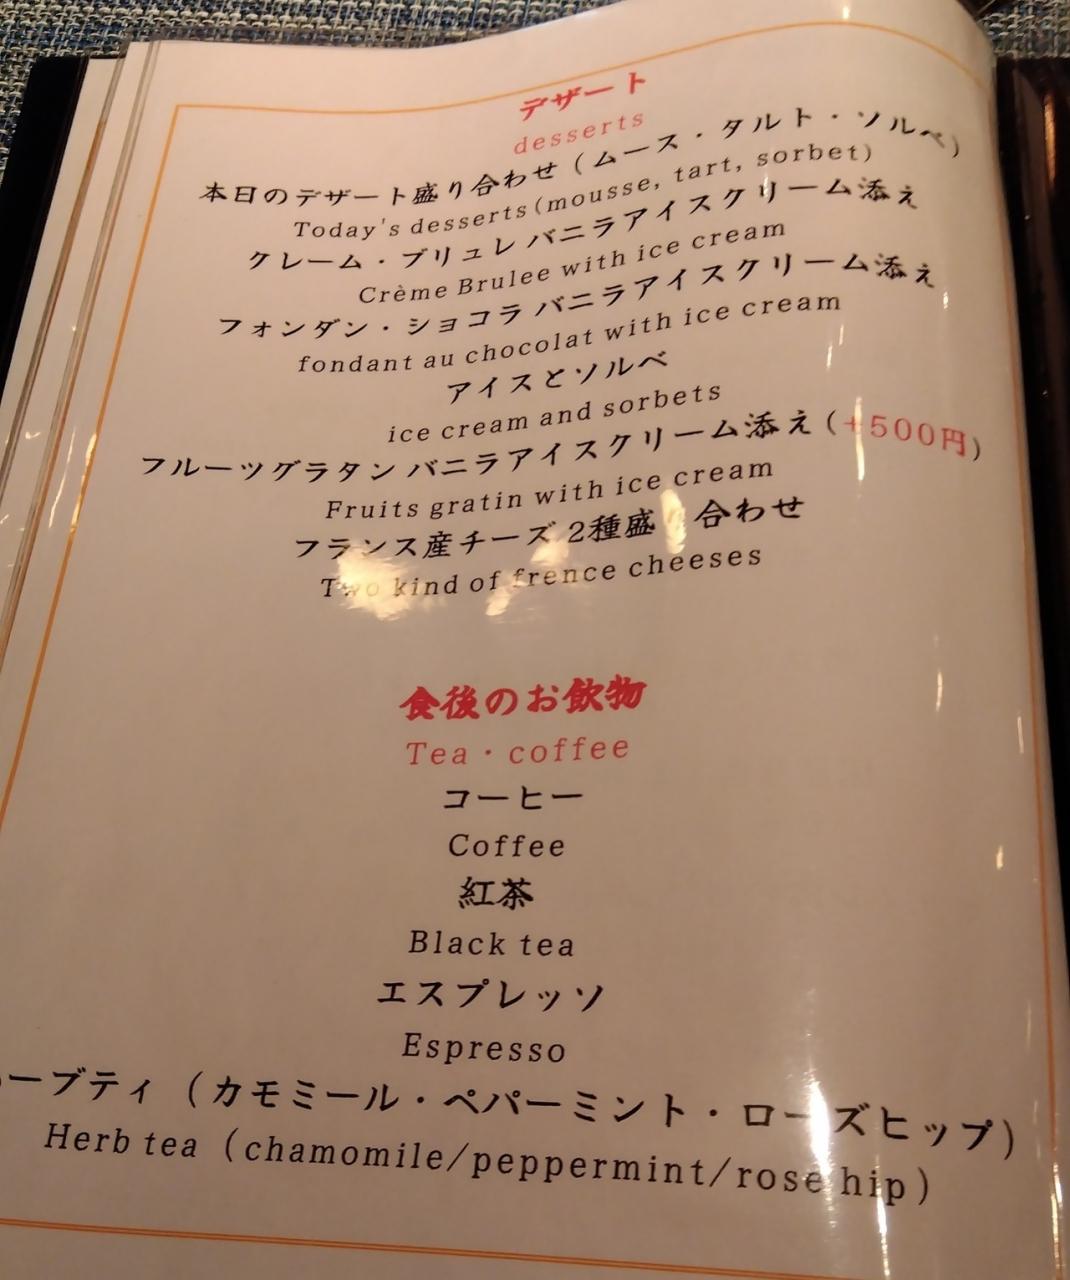 デザート
desserts
本日のデザート盛り合わせ（ムース・タルト・ソルベ）
Today's desserts(mousse, tart, sorbet)
クレーム・ブリュレ バニラアイスクリーム添え
Crème Brulee with ice cream
フォンダン・ショコラ バニラアイスクリーム添え
fondant au chocolat with ice cream
アイスとソルベ
ice cream and sorbets
フルーツグラタン バニラアイスクリーム添え(+500円)
Fruits gratin with ice cream
フランス産チーズ 2種盛り合わせ
Two kind of frence cheeses
食後のお飲物
Tea・coffee
コーヒー
Coffee
紅茶
Black tea
エスプレッソ
Espresso
ーブティ（カモミール・ペパーミント・ローズヒップ）
Herb tea（chamomile/peppermint/rose hip）